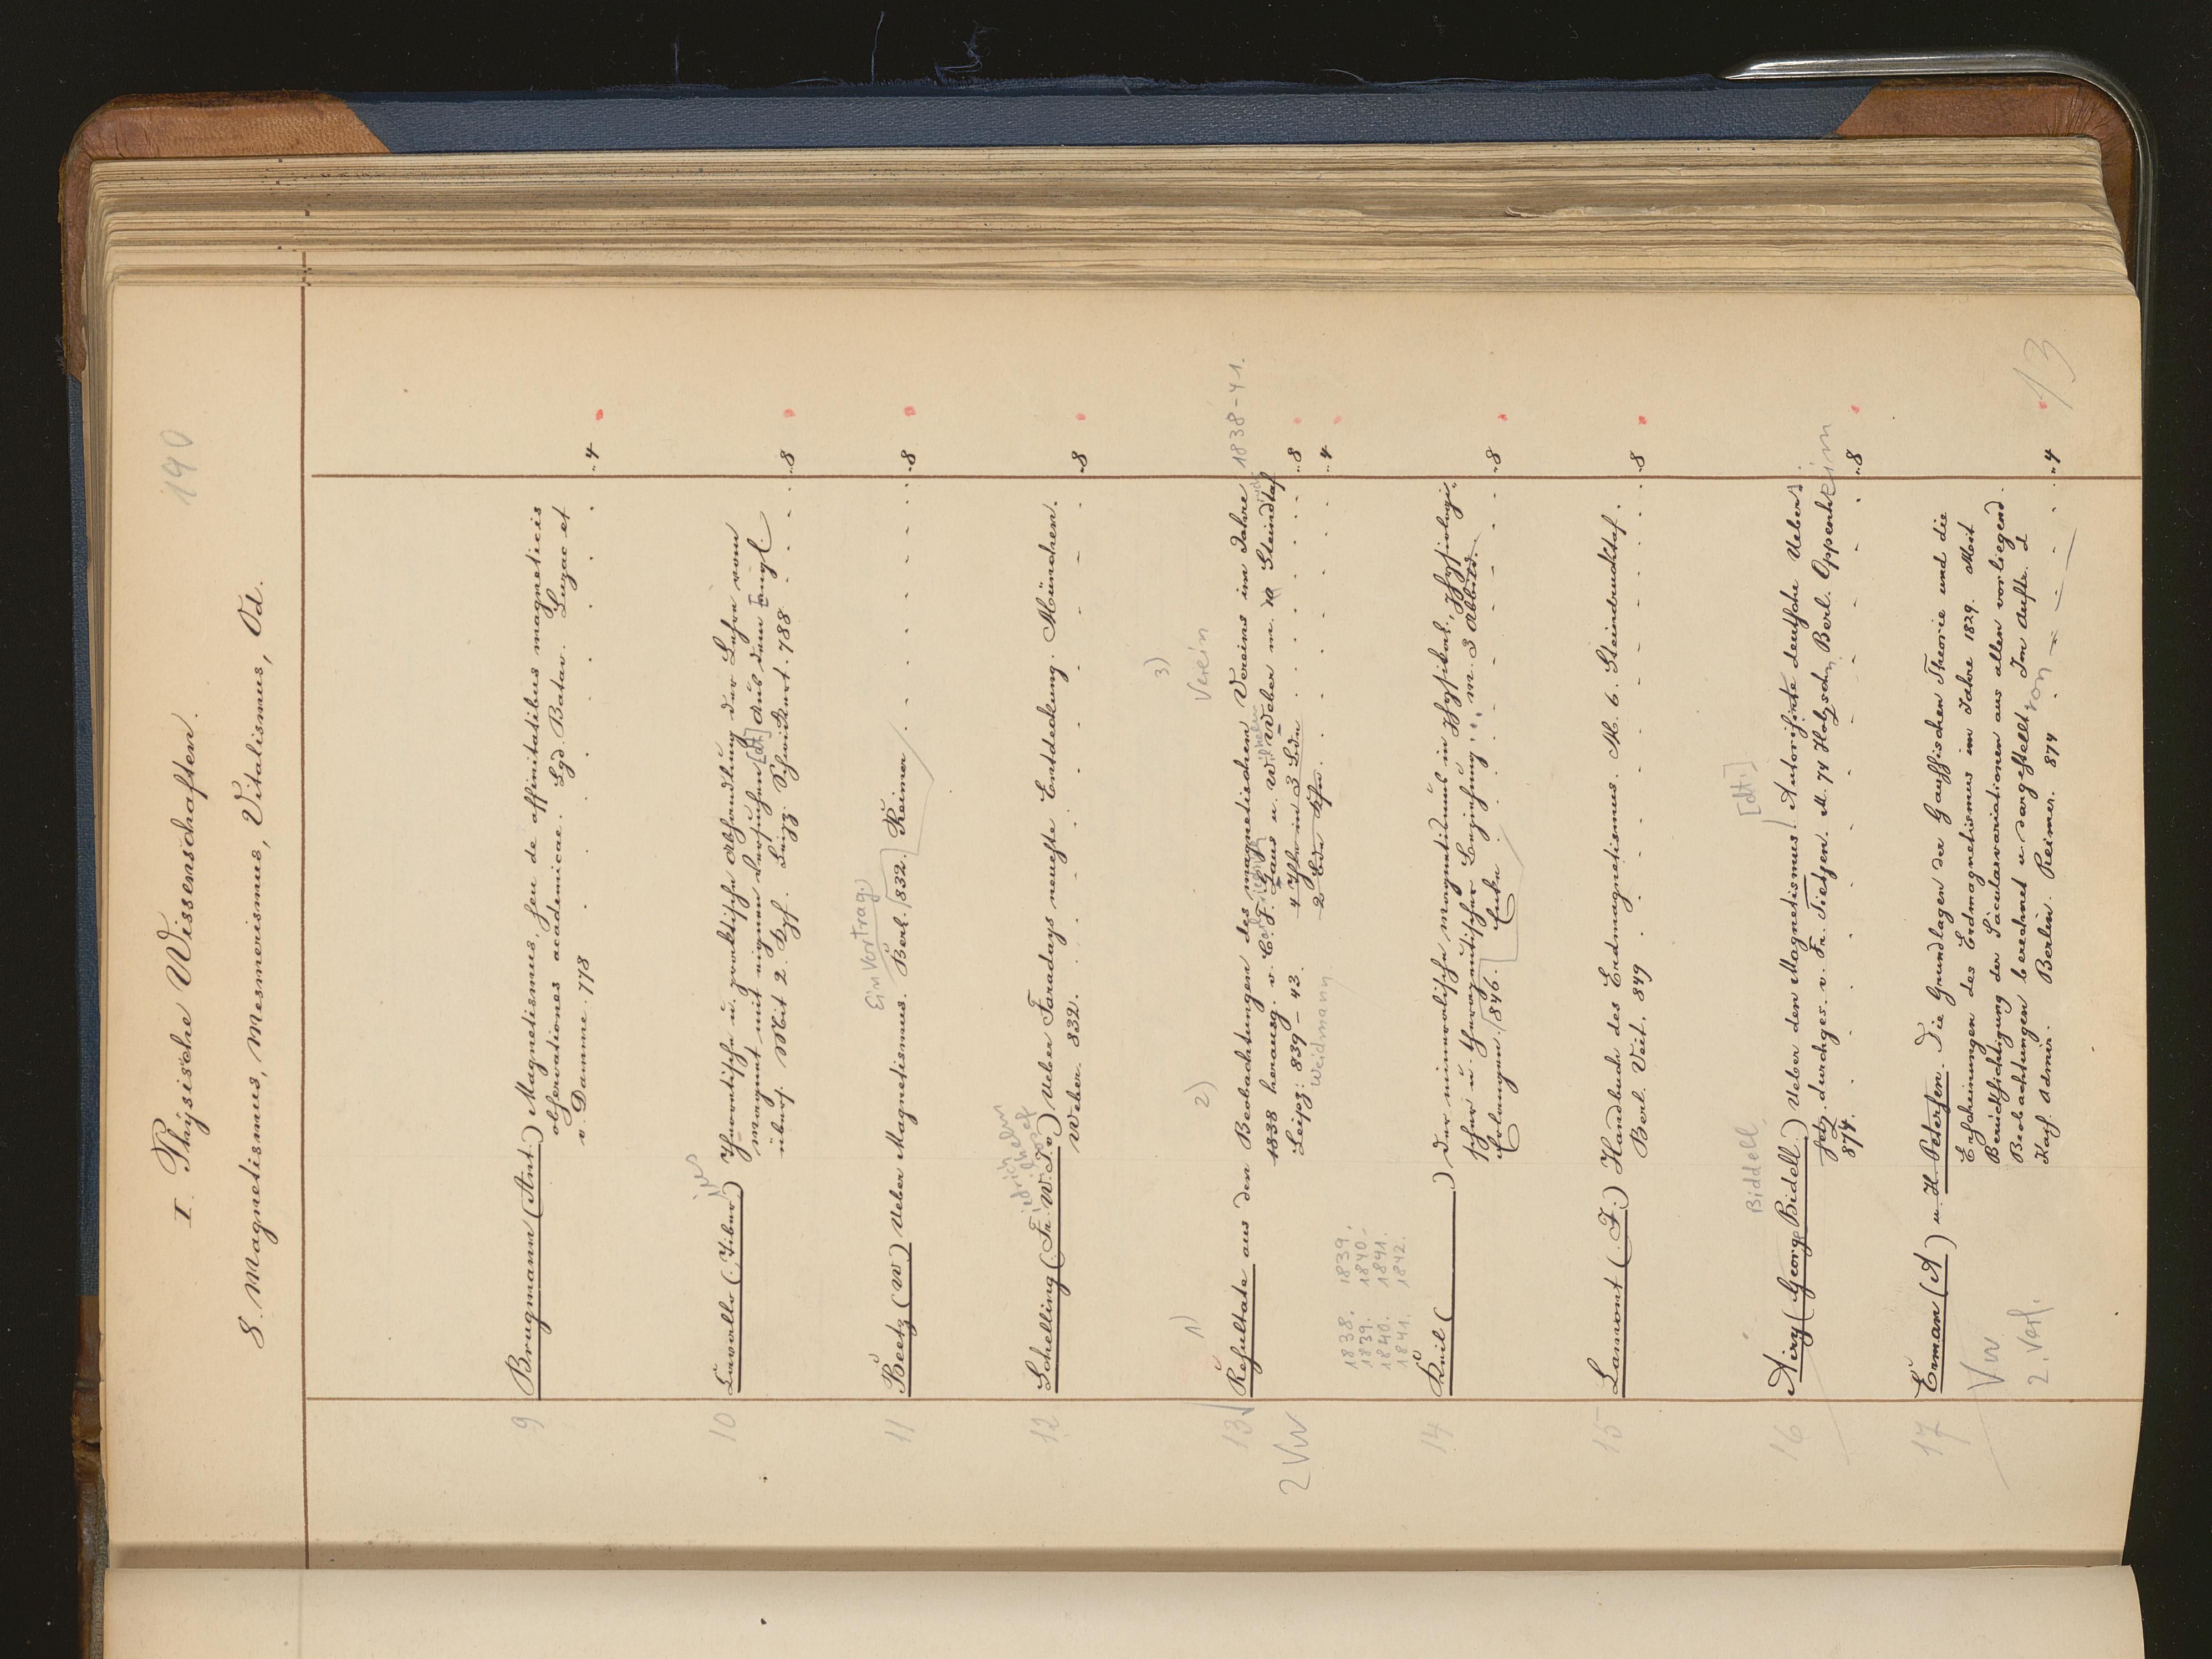 190
I. Physische Wissenschaften.
8. Magnetismus, Mesmerismus, Vitalismus, Od.
9 Brugmann (Ant.) Magnetismus, seu de affinitatibus magneticis
observationes academicae. Lgd. Batav. Luzac et
v. Damme. 778 . . . . . . . . „4
ius
10 Cavallo (Tiber.) Theoretische u. praktische Abhandlung der Lehre vom
Magnet mit eignen Versuchen [dt] Aus dem Engl
übers. Mit 2. Kpf. Leipz. Schwickert. 788 . . . . „8
Ein Vortrag.
11 Beetz (W) Ueber Magnetismus. Berl. 832. Reimer . . . . . . „8
Friedrich Wilhelm Josef
12 Schelling (Fr. W. J. v.) Ueber Faradays neueste Entdeckung. München.
Weber. 832. . . . . . . . . . „8
1) 2) 3)
Verein
13 Resultate aus den Beobachtungen des magnetischen Vereins im Jahre 1838-41.
1838 herausg. v. C. F. Gaus u. W. Weber m. 10 Steindtaf
Leipz: 839 – 43. 4 Thle in 3 Bdn . . . . . . „8
Weidmann 2 Bde . . . . . . „4
2 Vw
1838. 1839.
1839. 1840.
1840. 1841.
1841. 1842.
14 Keil ( ) Der mineralische Magnetismus in physikal., physiologi-
scher u. therapeutischer Beziehung . . . m. 3 Abbild.
Erlangen. 846. Enke . . . . . . „8
15 Lamont (J.) Handbuch des Erdmagnetismus. M. 6. Steindrucktaf.
Berl. Veit. 849 . . . . . . . . „8
Biddell [dt.]
16 Airy (Georg Bidell.) Ueber den Magnetismus. Autorisirte deutsche Uebers
setz. durchges. v. Fr. Tietjen. M. 74 Holzschn. Berl. Oppenheim
874. . . . . . . . . „8
17 Erman (A) u. H. Petersen. Die Grundlagen der Gaussischen Theorie und die
Erscheinungen des Erdmagnetismus im Jahre 1829. Mit
Berücksichtigung der Sæcularvariationen aus allen vorliegend.
Beobachtungen berechnet u dargestellt von Im Auftr. d
Kais. Admir. Berlin. Reimer. 874 . . . . „4
Vw
2. Verf.
13